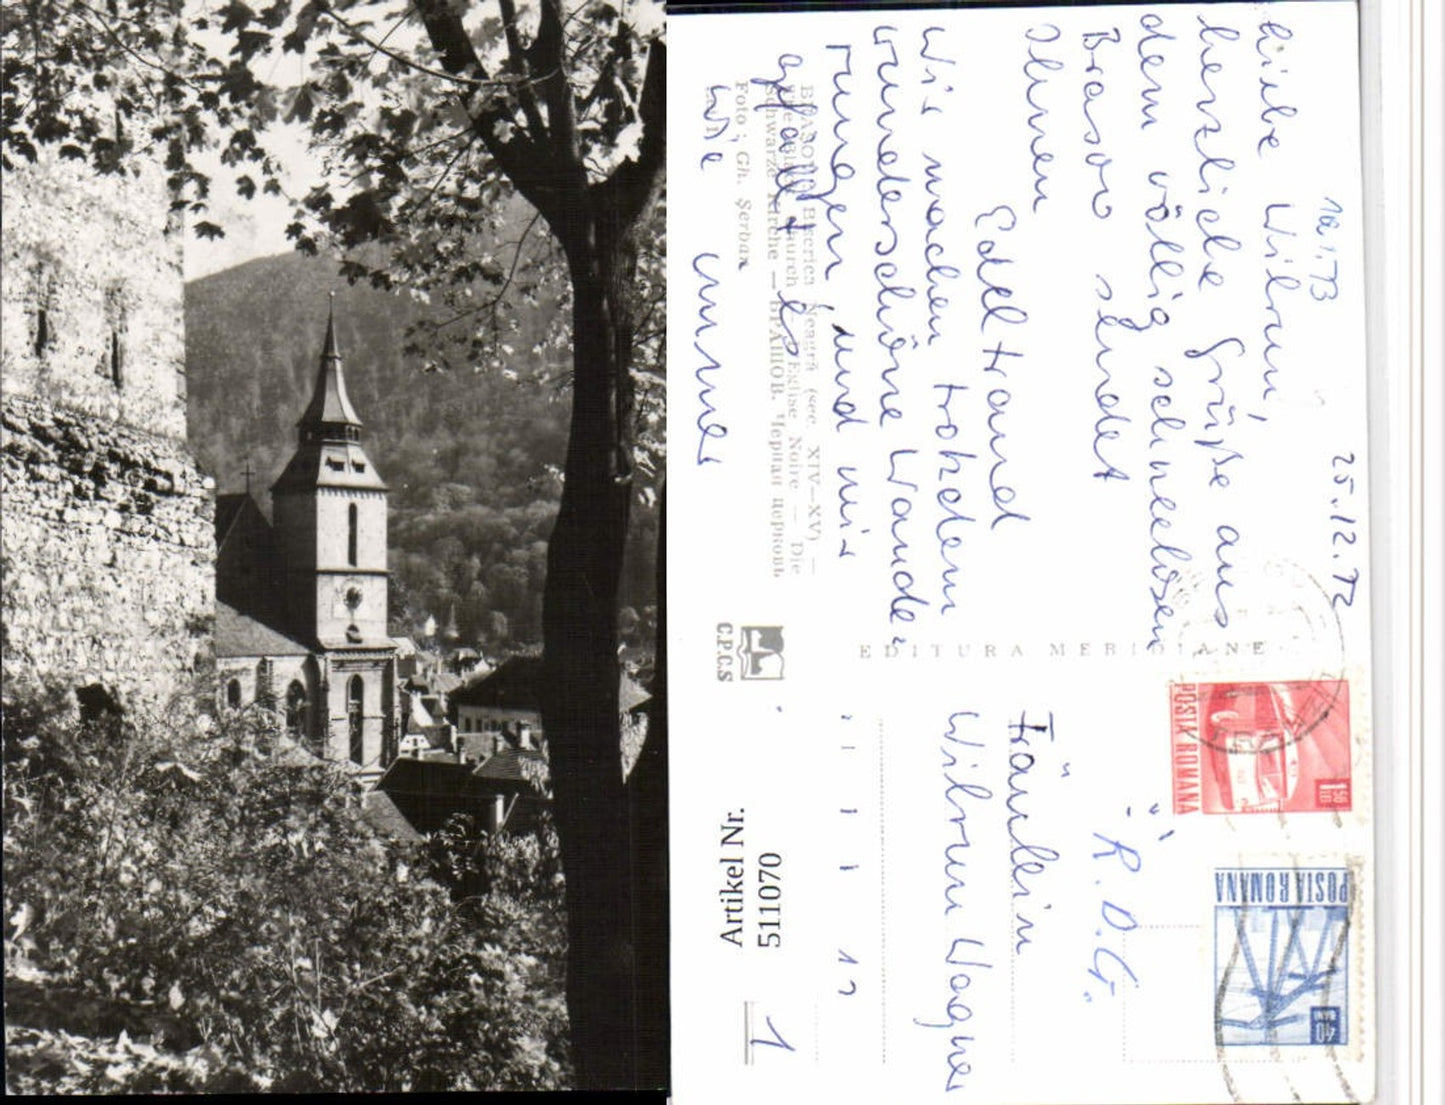 25.12.72
10.1.73
Liebe Wilrun,
herzliche Grüße aus
dem völlig schneelosen
Brasov sendet
Ihnen
Edeltraud
Wir machen trotzdem
wunderschöne Wande-
rungen und mir
gefällt es
wie immer
BRAȘOV Biserica Neagră (sec. XIV—XV) —
The Black Church — L'Eglise Noire — Die
Schwarze Kirche — БРАШОВ. Черная церковь
Foto: Gh. Șerban
C.P.C.S
EDITURA MERIDIANE
POSTA ROMANA
1 50 LEI
POSTA ROMANA
40 BANI
"R.D.G."
Fräulein
Wilrun Wagner
Artikel Nr.
511070
1